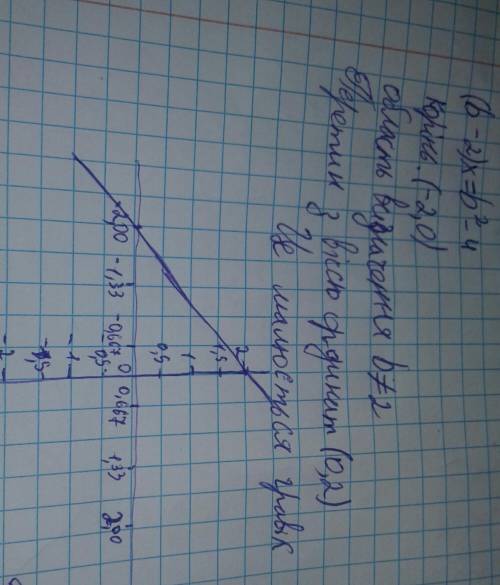 (b-2)x=b²-4
корінь (-2,0)
область визначення b≠2
Перетин з вісю ординат (0,2)
Це малюється графік
2
1,5
1
0,5
-2,00 -1,33 -0,667 0 0,667 1,33 2,00
-0,5
-1
-1,5
-2